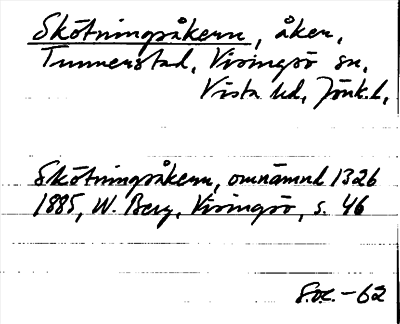 Skötningsåkern, åker,
Tunnerstad, Visingsö sn,
Vista hd, Jönk.l.
Skötningsåkern, omnämnd 1326
1885, W. Berg, Visingsö, s. 46
-62